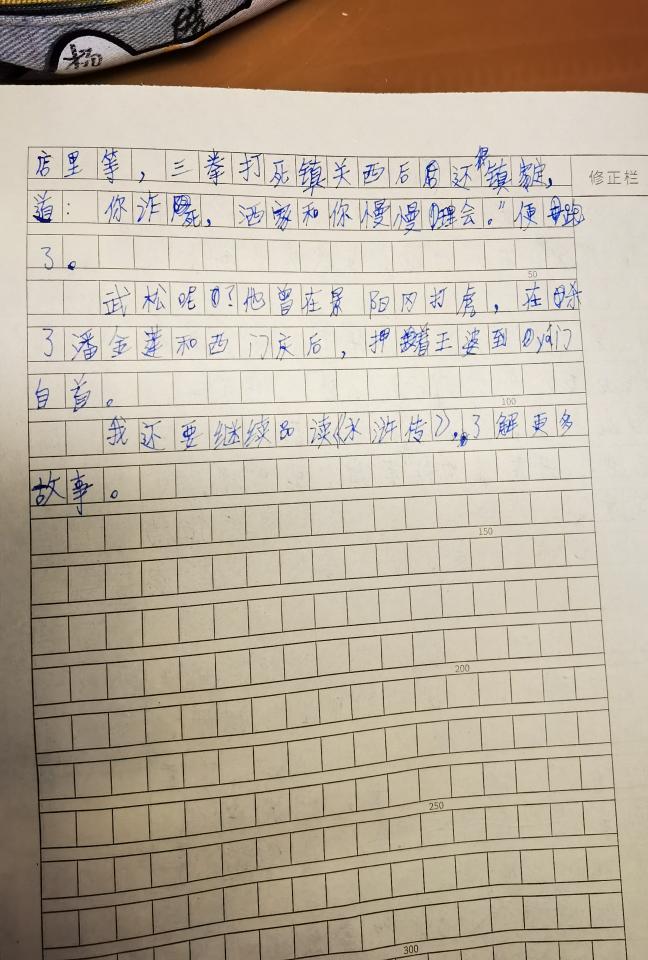 店里等，三拳打死镇关西后还很镇定，
修正栏
道：你诈死，洒家和你慢慢理会。”便跑
了。
50
武松呢？他曾在景阳冈打虎，在杀
了潘金莲和西门庆后，押着王婆到yá门
自首。
100
我还要继续品读《水浒传》，了解更多
故事。
150
200
250
300